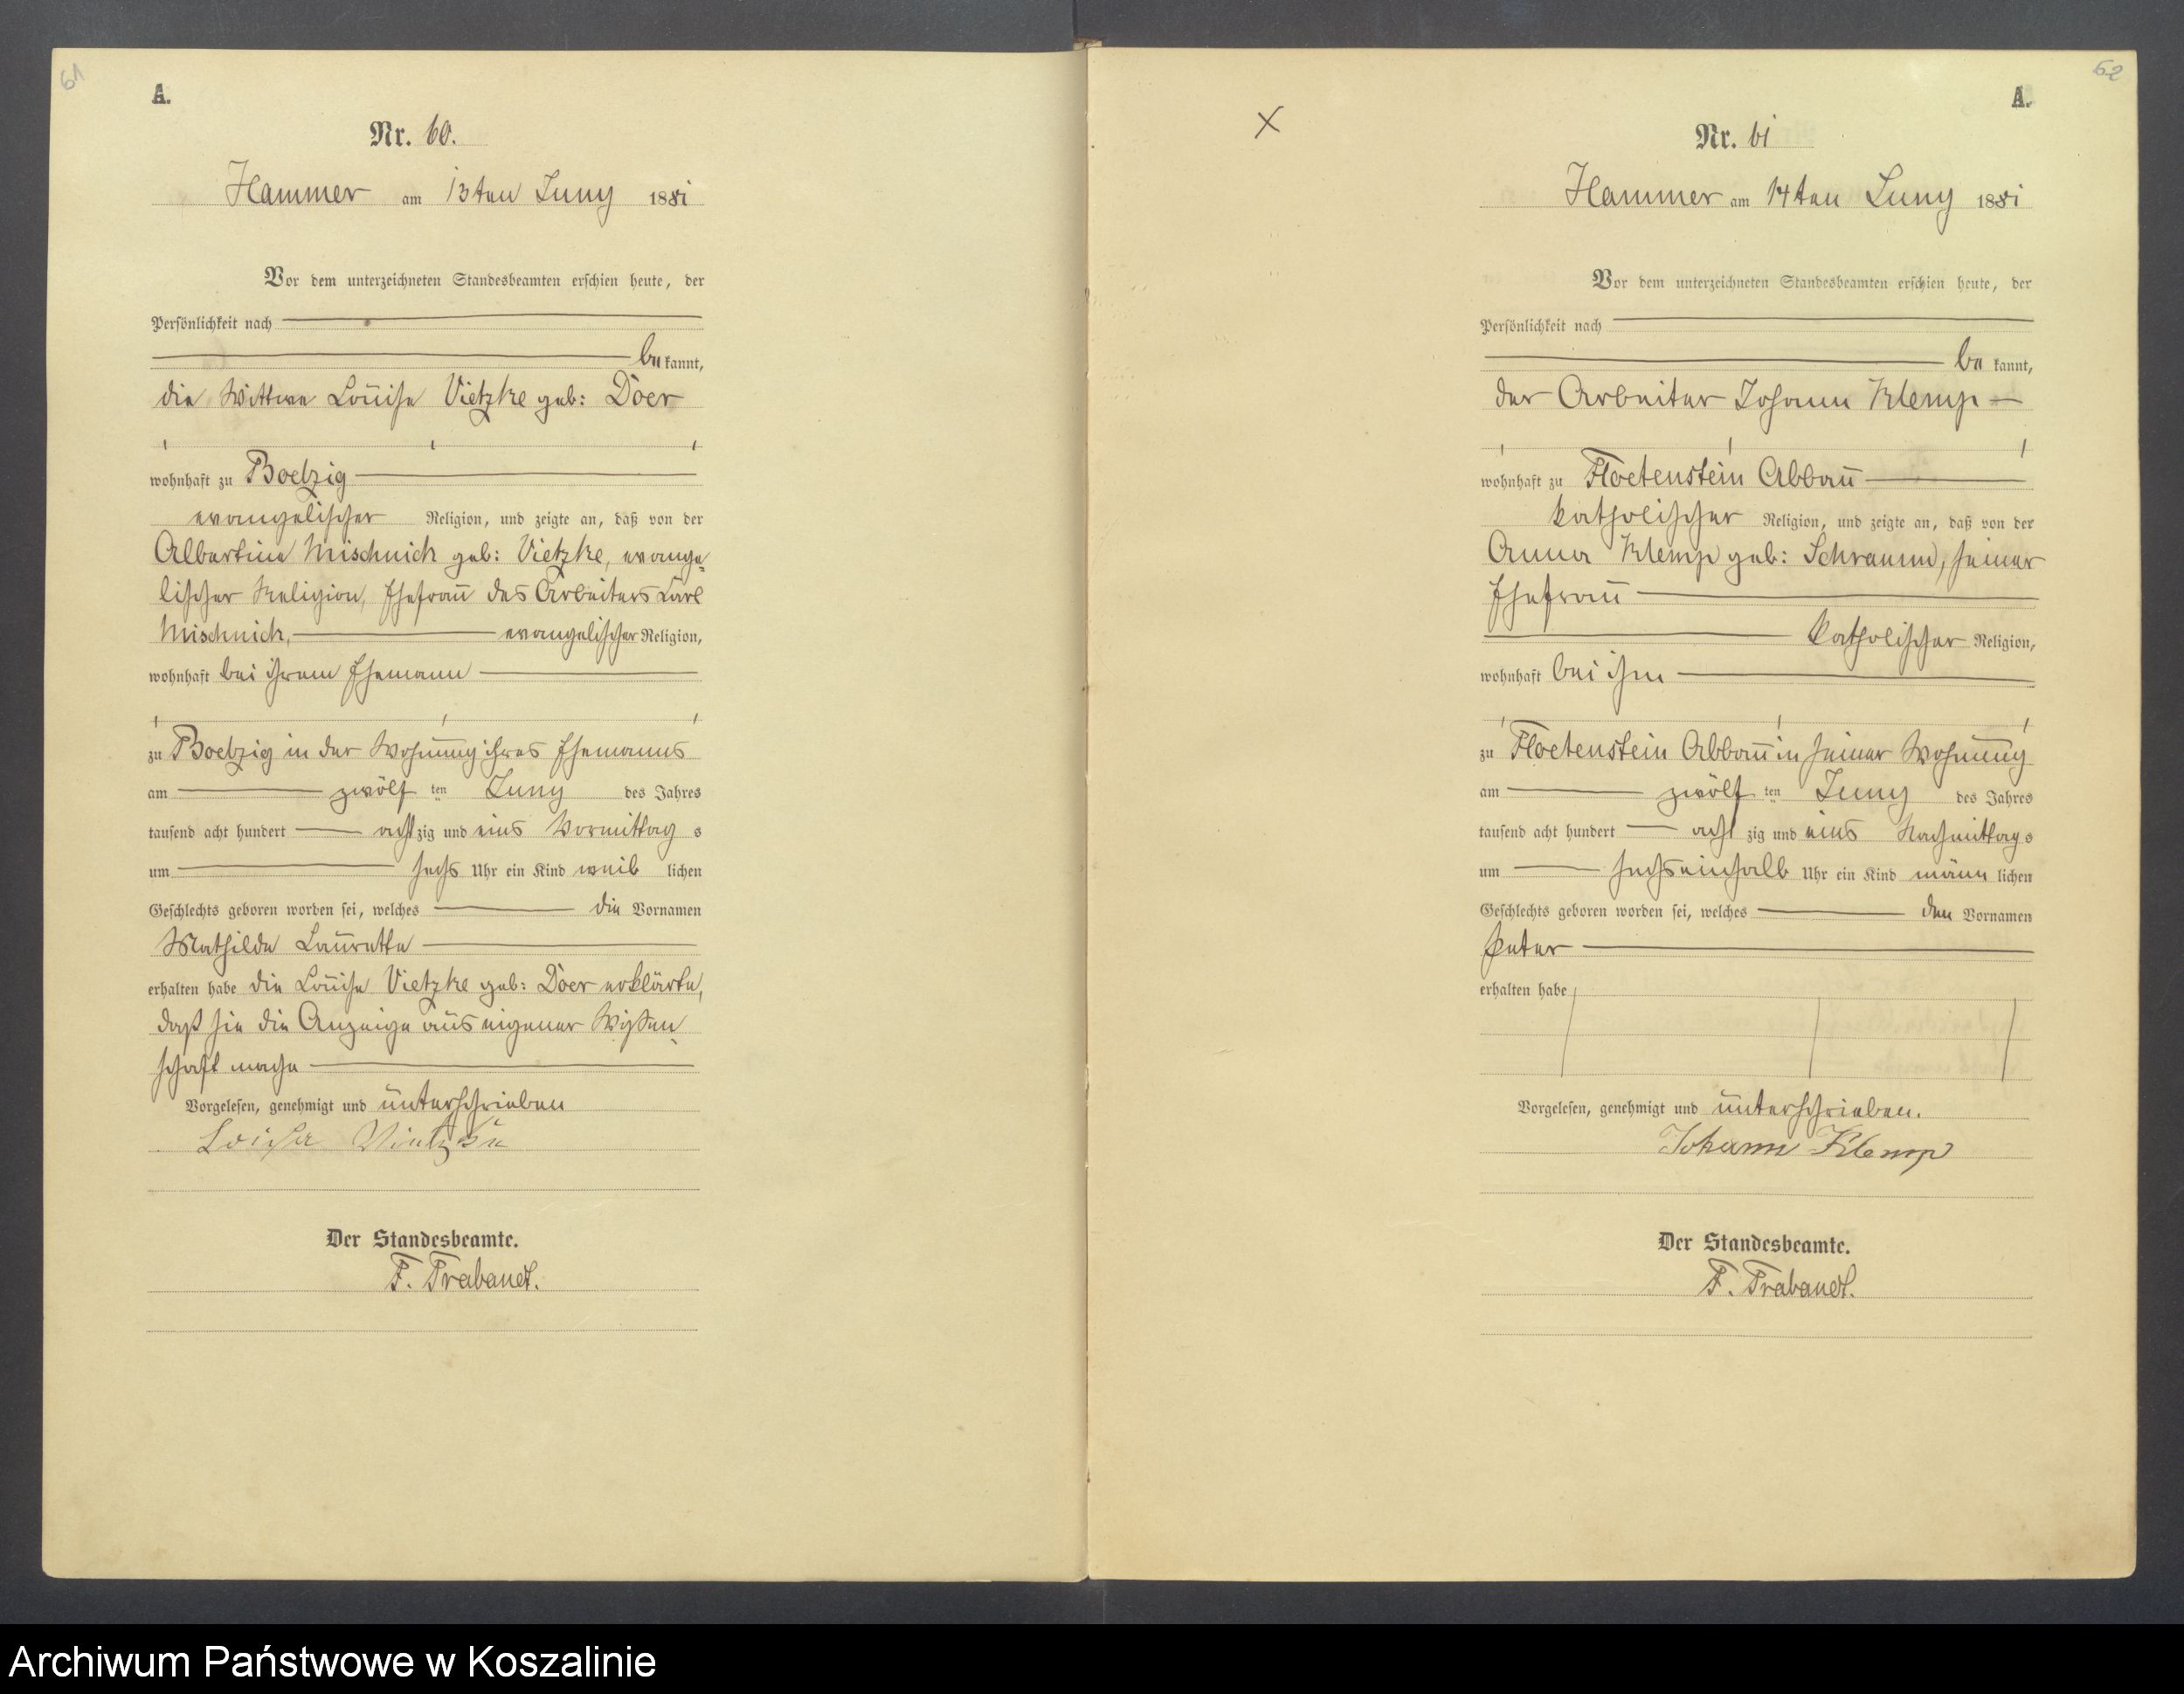 61
A.
Nr. 60.
Hammer am 13ten Juny 1881
Vor dem unterzeichneten Standesbeamten erschien heute, der
Persönlichkeit nach
be kannt,
die Wittwe Louise Vietzke geb: Doer
wohnhaft zu Boelzig
evangelischer Religion, und zeigte an, daß von der
Albertine Mischnick geb: Vietzke, evange-
lischer Religion, Ehefrau des Arbeiters Carl
Mischnick, evangelischer Religion,
wohnhaft bei ihrem Ehemann
zu Boelzig in der Wohnung ihres Ehemanns
am zwölf ten Juny des Jahres
tausend acht hundert acht zig und eins Vormittag s
um sechs Uhr ein Kind weib lichen
Geschlechts geboren worden sei, welches die Vornamen
Mathilde Laurette
erhalten habe die Louise Vietzke geb: Doer erklärte,
daß sie die Anzeige aus eigener Wissen
schaft mache
Vorgelesen, genehmigt und unterschrieben
Loise Vietzke
Der Standesbeamte.
F. Trabandt.
62
A.
X
Nr. 61
Hammer am 14ten Juny 1881
Vor dem unterzeichneten Standesbeamten erschien heute, der
Persönlichkeit nach
be kannt,
der Arbeiter Johann Klemp
wohnhaft zu Floetenstein Abbau
katholischer Religion, und zeigte an, daß von der
Anna Klemp geb: Schramm, seiner
Ehefrau
katholischer Religion,
wohnhaft bei ihm
zu Floetenstein Abbau in seiner Wohnung
am zwölf ten Juny des Jahres
tausend acht hundert acht zig und eins Nachmittag s
um sechseinhalb Uhr ein Kind männ lichen
Geschlechts geboren worden sei, welches den Vornamen
Peter
erhalten habe
Vorgelesen, genehmigt und unterschrieben.
Johann Klemp
Der Standesbeamte.
F. Trabandt.
Archiwum Państwowe w Koszalinie